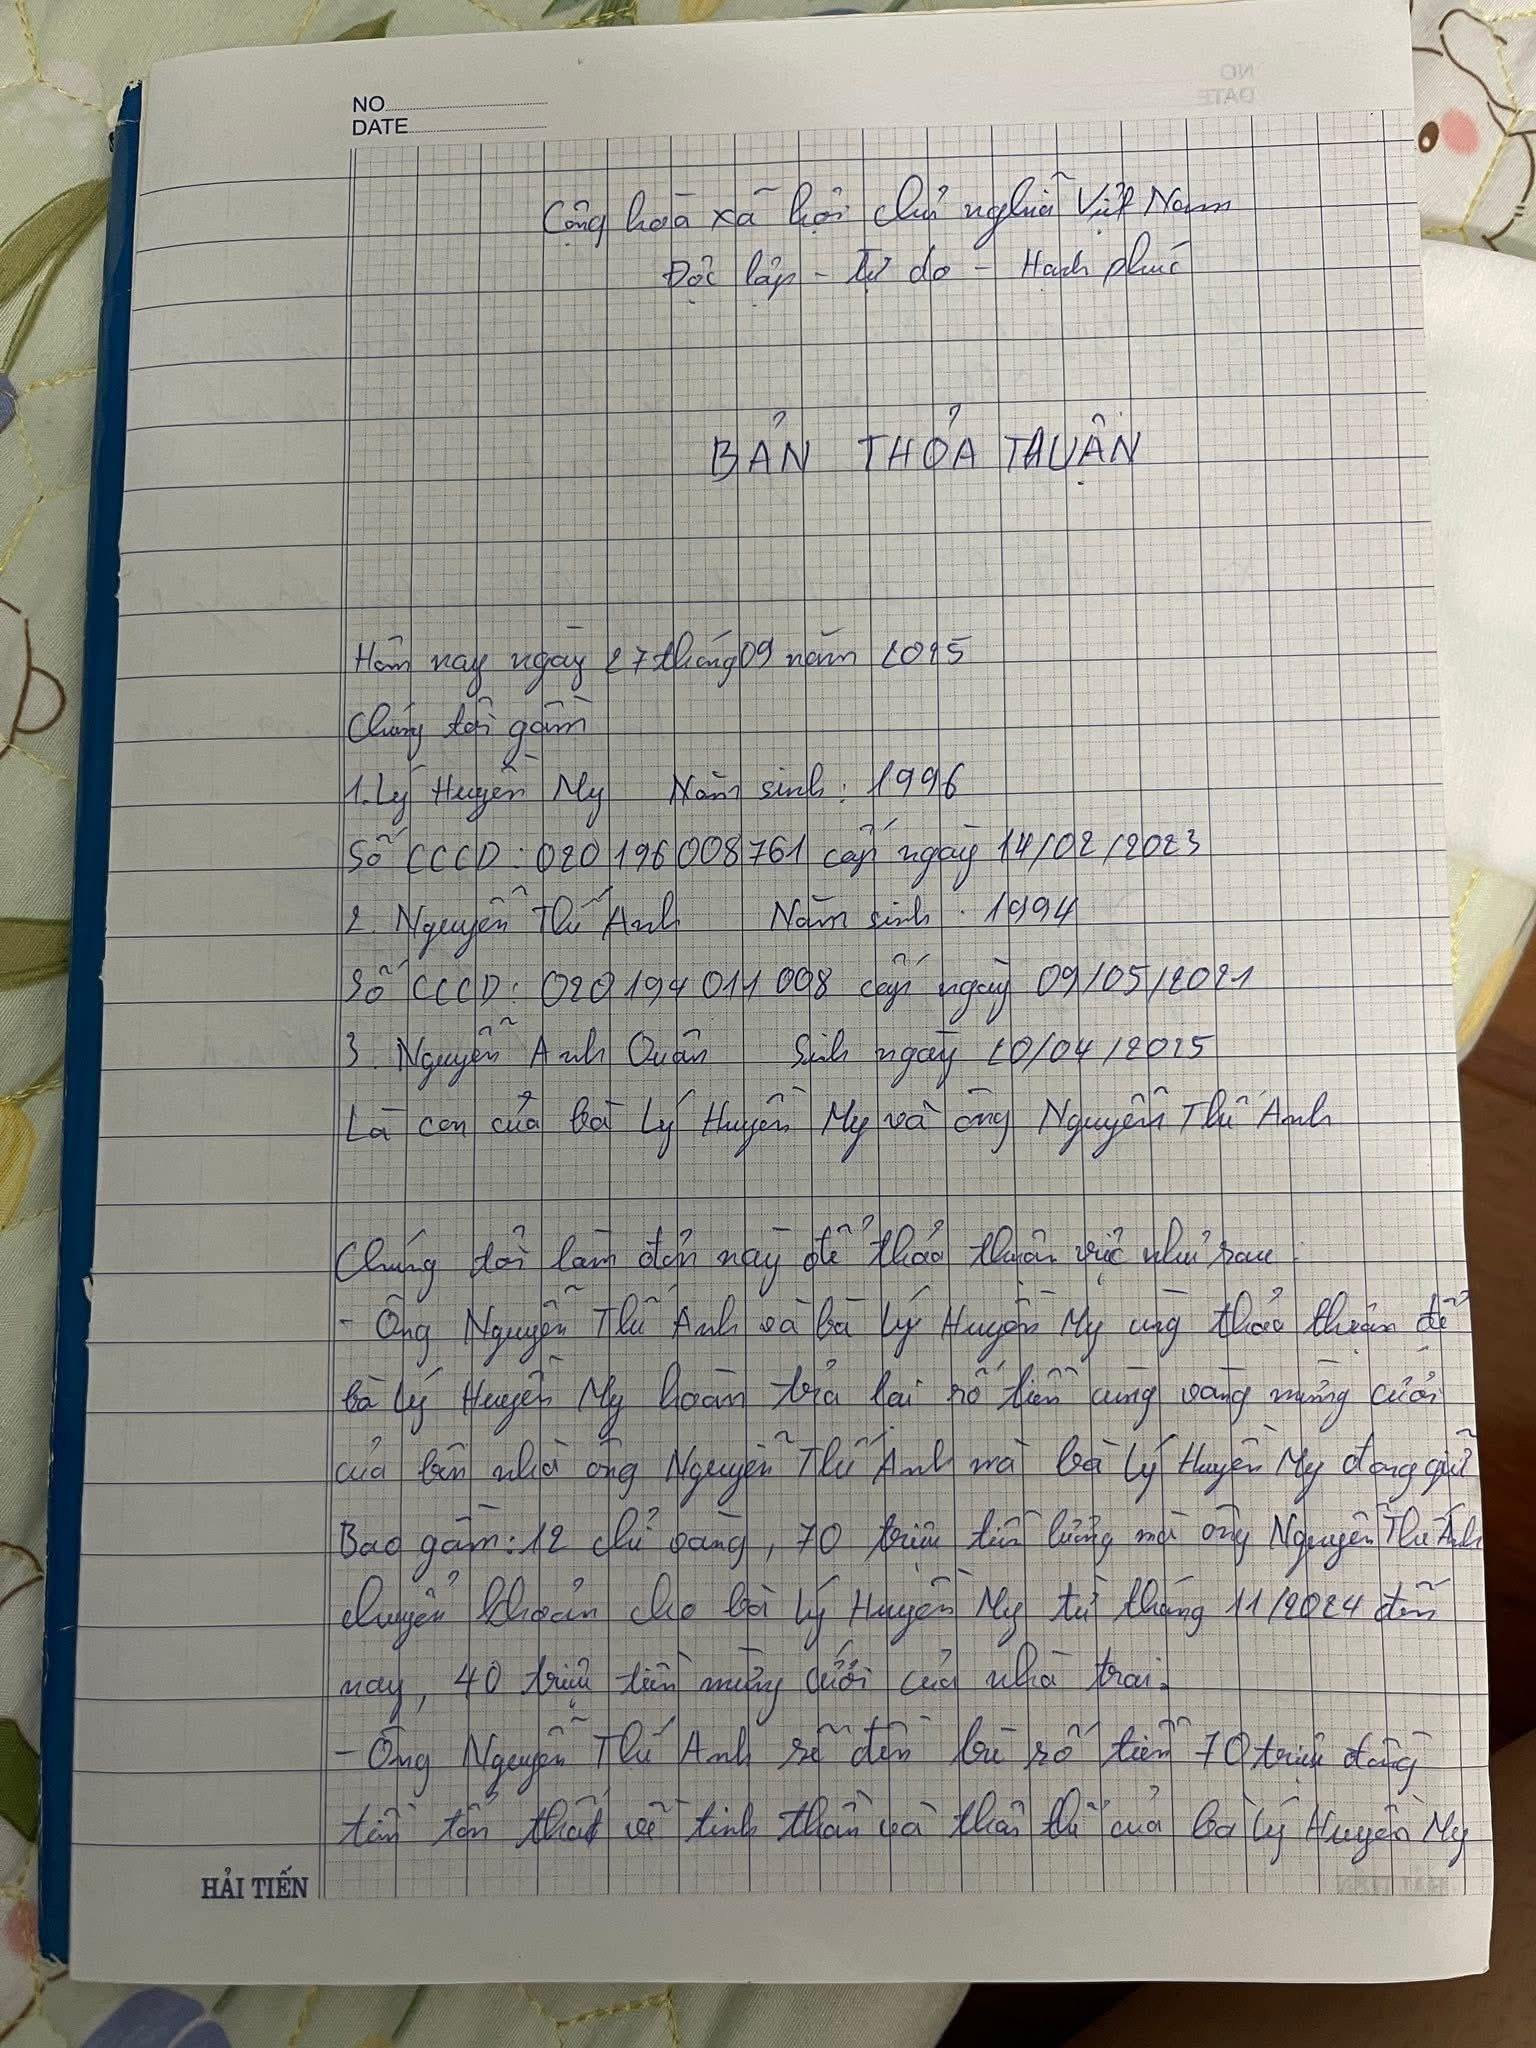 NO
DATE
Cộng hoà xã hội chủ nghĩa Việt Nam
Độc lập - Tự do - Hạnh phúc
BẢN THỎA THUẬN
Hôm nay ngày 27 tháng 09 năm 2025
Chúng tôi gồm
1. Lý Huyền My Năm sinh: 1996
Số CCCD: 020196008761 cấp ngày 14/02/2023
2. Nguyễn Thế Anh Năm sinh: 1994
Số CCCD: 020194011008 cấp ngày 09/05/2021
3. Nguyễn Anh Quân Sinh ngày 20/04/2025
Là con của bà Lý Huyền My và ông Nguyễn Thế Anh
Chúng tôi làm đơn này để thảo thuận việc như sau:
- Ông Nguyễn Thế Anh và bà Lý Huyền My cùng thảo thuận để
bà Lý Huyền My hoàn trả lại số tiền cùng vàng mừng cưới
của bên nhà ông Nguyễn Thế Anh mà bà Lý Huyền My đang giữ
Bao gồm: 12 chỉ vàng, 70 triệu tiền lương mà ông Nguyễn Thế Anh
chuyển khoản cho bà Lý Huyền My từ tháng 11/2024 đến
nay, 40 triệu tiền mừng cưới của nhà trai.
- Ông Nguyễn Thế Anh sẽ đền bù số tiền 70 triệu đồng
tiền tổn thất về tinh thần và thân thể của bà Lý Huyền My
HẢI TIẾN